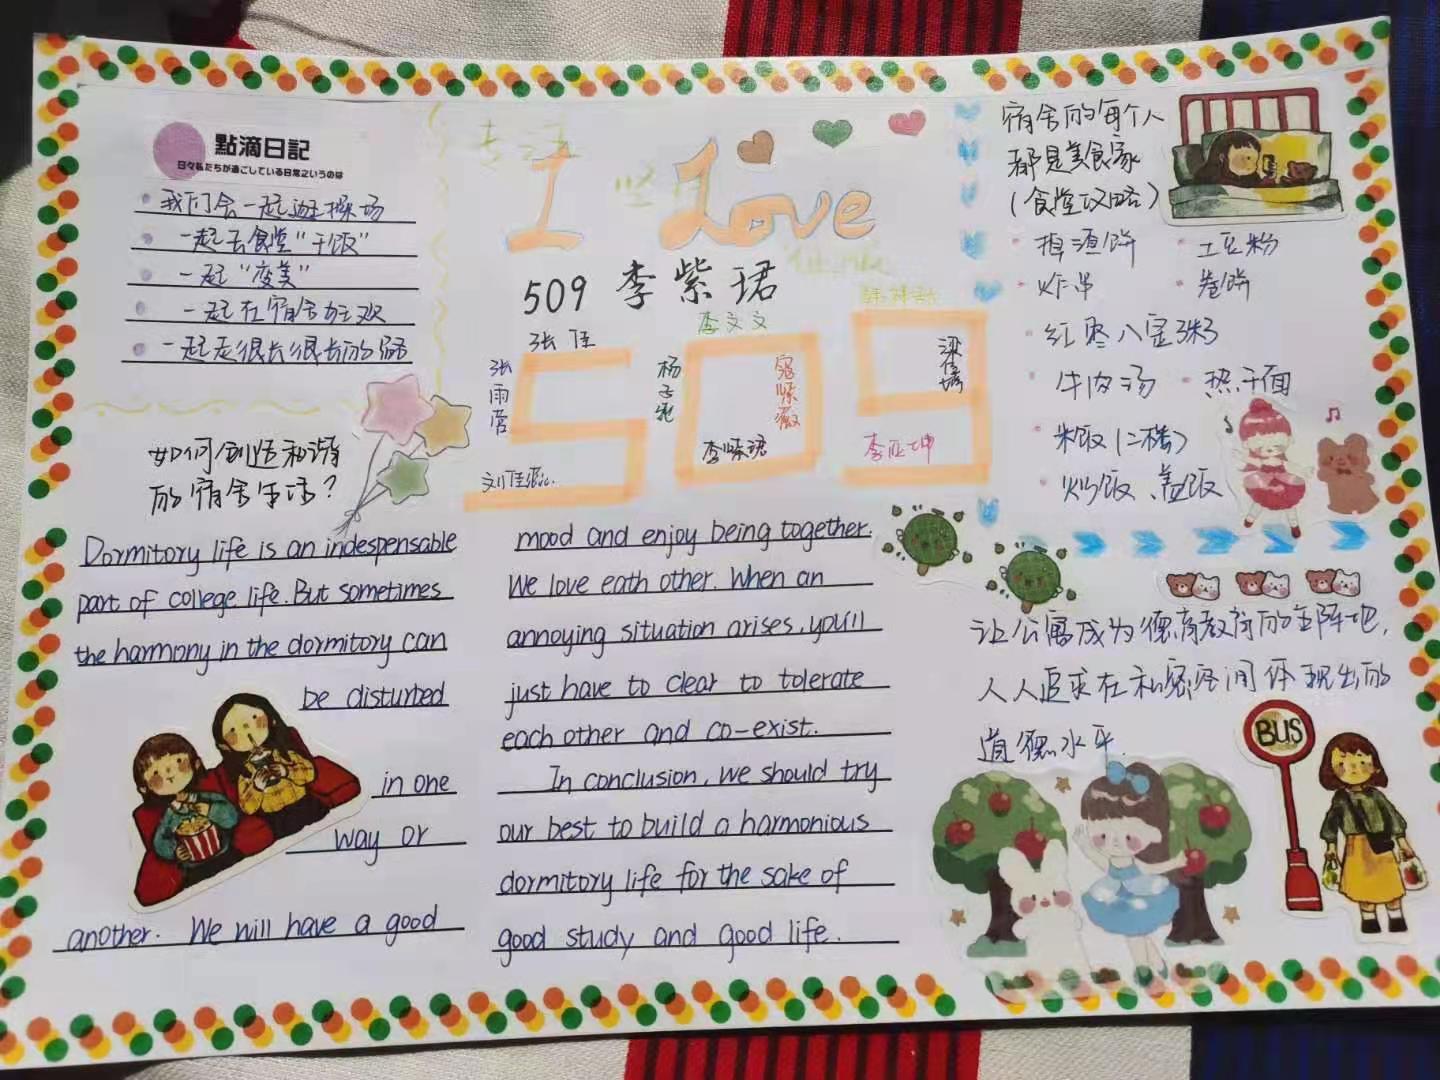 點滴日記
日々私たちが過ごしている日常というのは
我们会一起逛操场
一起去食堂"干饭"
一起"变美"
一起在宿舍狂欢
一起走很长很长的路
I Love
509 李紫珺
李文文
张佳
张雨萱
杨子
寇紫薇
梁倩
刘佳
李紫珺
李正坤
509
宿舍的每个人
都是美食家
(食堂攻略)
掉渣饼
土豆粉
炸串
卷饼
红枣八宝粥
牛肉汤
热干面
米饭(二楼)
炒饭、盖饭
如何创造和谐
的宿舍生活?
Dormitory life is an indespensable
part of college life. But sometimes
the harmony in the dormitory can
be disturbed
in one
way or
another. We will have a good
mood and enjoy being together.
We love eath other. When an
annoying situation arises, you'll
just have to clear to tolerate
each other and co-exist.
In conclusion, we should try
our best to build a harmonious
dormitory life for the sake of
good study and good life.
让公寓成为德育教育的主阵地,
人人追求在私密空间体现出的
道德水平.
BUS